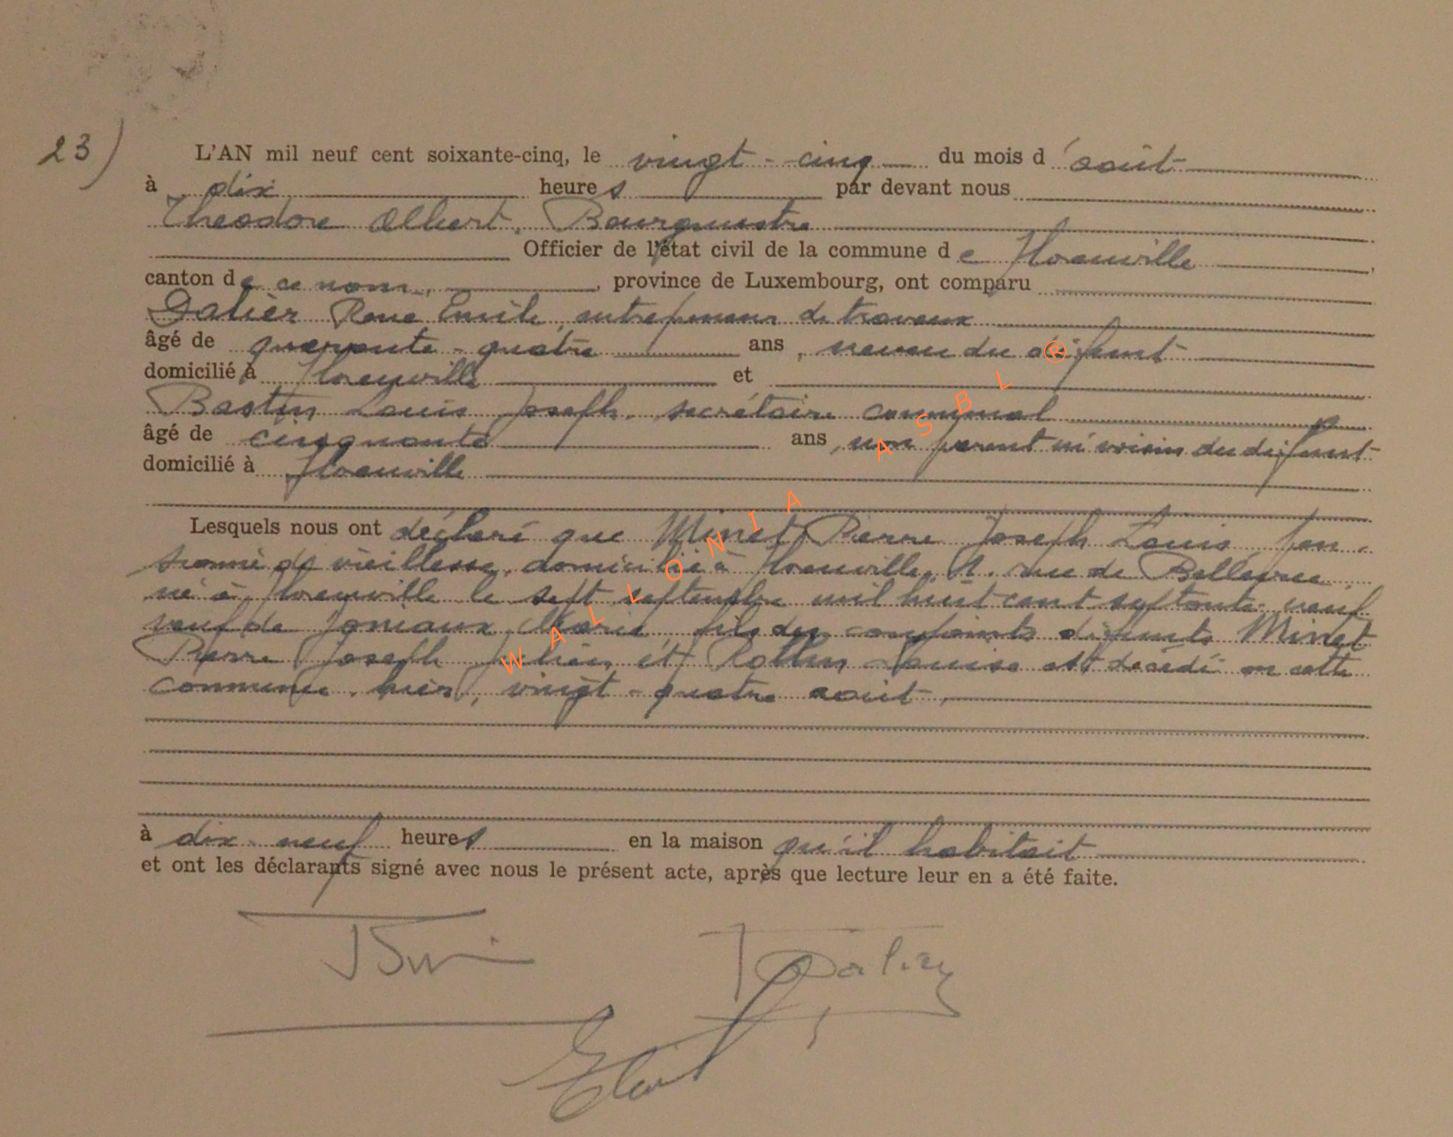 23)
L'AN mil neuf cent soixante-cinq, le vingt-cinq du mois d'août
à dix heures par devant nous
Théodore Albert, Bourgmestre
Officier de l'état civil de la commune de Florenville
canton de ce nom, province de Luxembourg, ont comparu
René Emile, entrepreneur de travaux
âgé de quarante-quatre ans, neveu du défunt
domicilié à Florenville et
Bastin Louis Joseph, secrétaire communal
âgé de cinquante ans, non parent ni voisin du défunt
domicilié à Florenville
Lesquels nous ont déclaré que Minet Pierre Joseph Louis pen-
sionné de vieillesse, domicilié à Florenville, rue de
né à Florenville le sept septembre mil huit cent septante-neuf
veuf de Joniaux Marie, fils des conjoints défunts Minet
Pierre Joseph Julien et Rollin Louise est décédé en cette
commune, hier, vingt-quatre août,
à dix-neuf heures en la maison qu'il habitait
et ont les déclarants signé avec nous le présent acte, après que lecture leur en a été faite.
WALLONIA ASBL ®